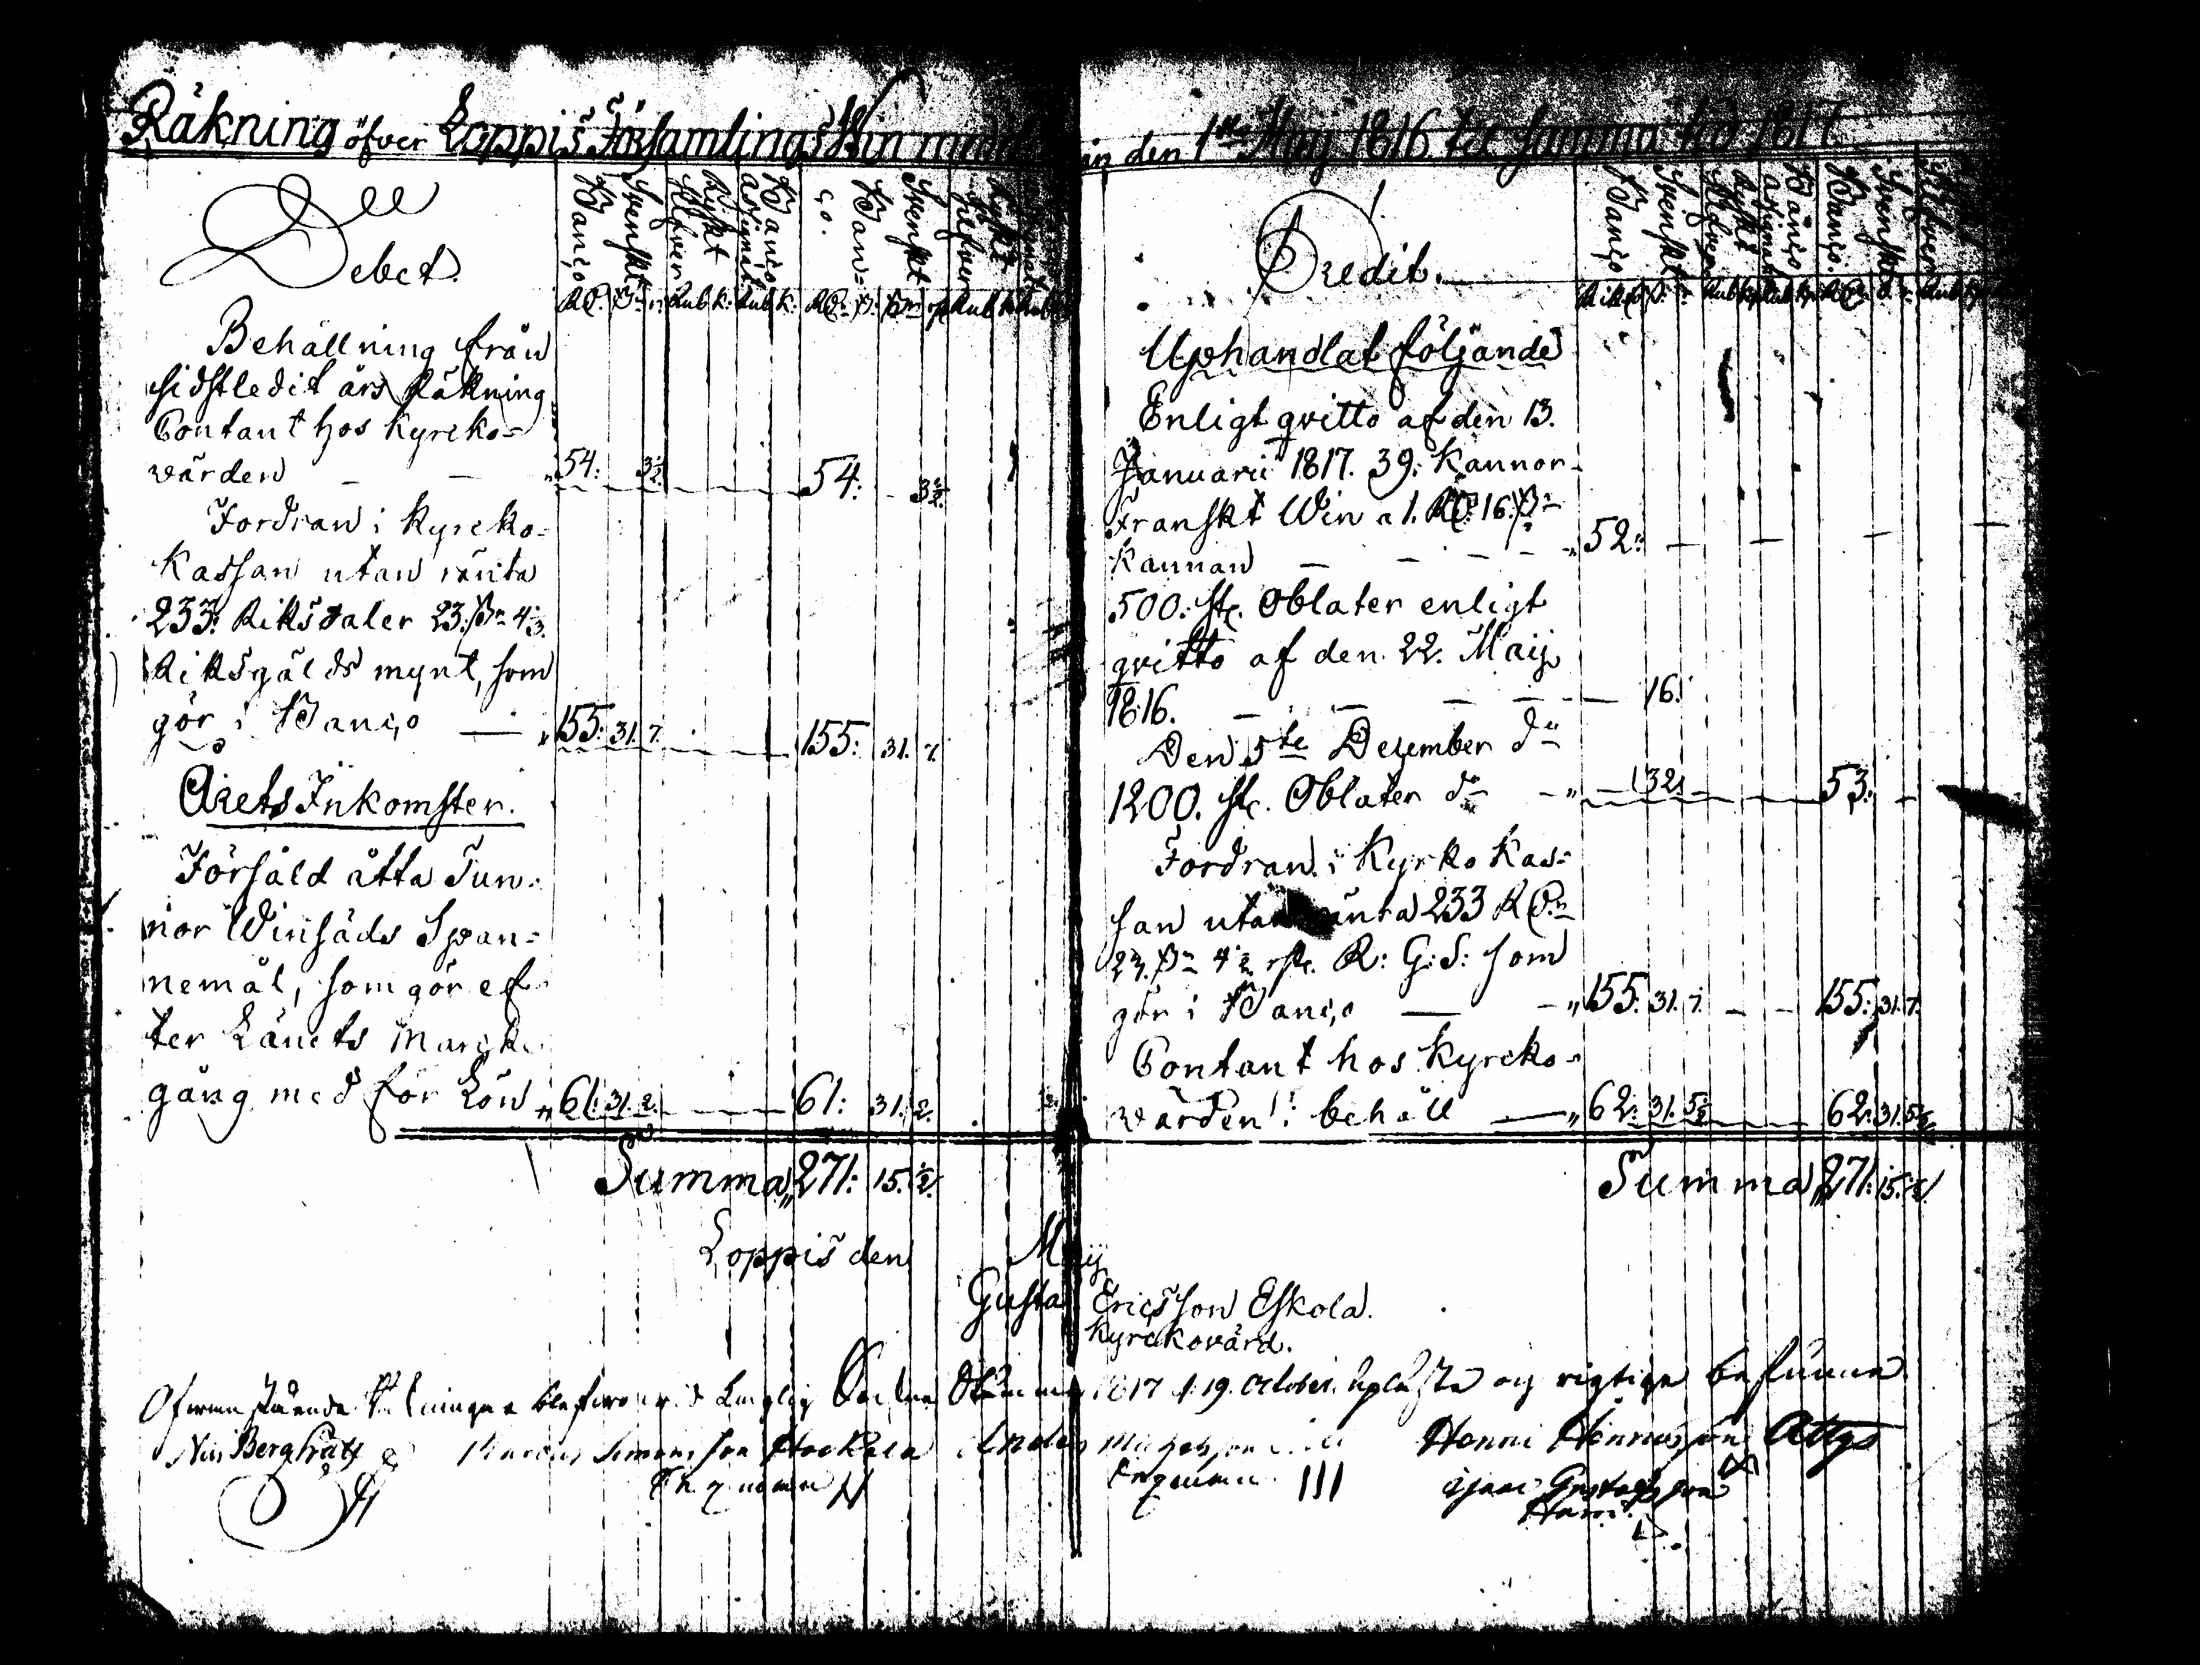 Räkning öfver Loppis Församlings Win med
in den 1sta Maij 1816 til samma tid 1817
Debet.
Banco
Svenskt
Silfver
Ryskt
Banco
assignat
Banco.
Svenskt
Silfver
Ryskt
Behållning från
sidstledit års Räkning
Contant hos Kyrcko-
värden — — „54: 3½. 54: 3½.
Fordran i Kyrcko-
Kassan utan ränta
233: Riksdaler 23: ß 4½.
Riksgälds mynt, som
gör i Banco — „155: 31. 7. 155: 31. 7.
Årets Inkomster.
Försåld åtta Tun-
nor Winsäds Span-
nemål, som gör ef-
ter Länets Marcke
gång med för Lön „61: 31. 2. 61: 31. 2.
Summa „271: 15. ½.
Credit.
Banco
Svenskt
Silfver
Ryskt
Banco
assignat
Banco.
Svenskt
Silfver
Uphandlat följande
Enligt qvitto af den 13.
Januarii 1817. 39: Kannor
Franskt Win a 1. RD: 16. ß
Kannan — — — „52: — — — —
500: st. Oblater enligt
qvitto af den 22. Maij
1816. — — — — — 16.
Den 5te December do
1200. st. Oblater do — „ — 32. — 53: —
Fordran i Kyrko Kas-
san utan ränta 233 RD:
23. ß 4½ rst. R: G:S: som
gör i Banco — — „155: 31. 7. — — 155: 31. 7.
Contant hos Kyrcko-
värden i behåll — „62: 31. 5½ 62: 31. 5½
Summa „271: 15. ½
Loppis den Maij
Gusta Ericsson Eskola.
Kyrckovärd.
Ofvanstående Räkningar blefvo vid Laglig Sockne Stämma 1817 d. 19. October. upläste og rigtige befunne.
Nils Bergfrått Marcus Simonsson Hockala Anders Henric Henricsson Attys
Gustafsson